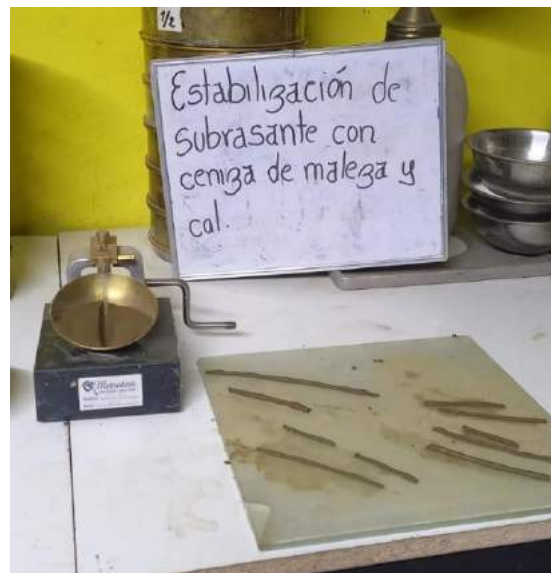 1/2
Estabilización de
subrasante con
ceniza de maleza y
cal.